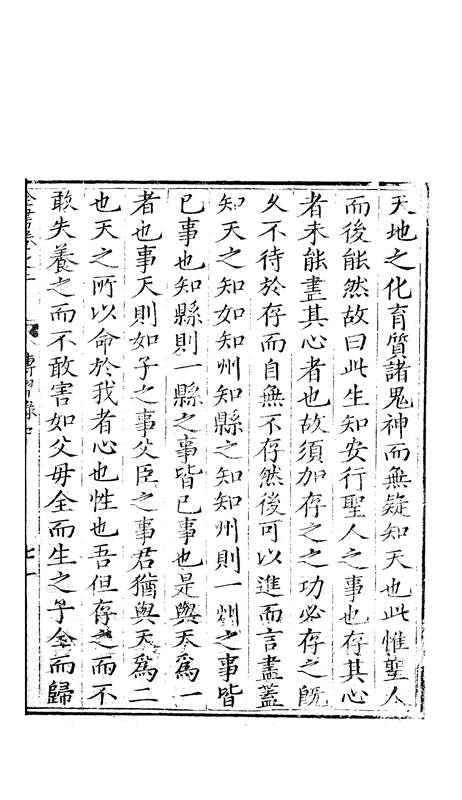 天地之化育質諸鬼神而無疑知天也此惟聖人
而後能然故曰此生知安行聖人之事也存其心
者未能盡其心者也故須加存之之功必存之既
久不待於存而自無不存然後可以進而言盡蓋
知天之知如知州知縣之知知州則一州之事皆
已事也知縣則一縣之事皆已事也是與天爲一
者也事天則如子之事父臣之事君猶與天爲二
也天之所以命於我者心也性也吾但存之而不
敢失養之而不敢害如父母全而生之子全而歸
傳習録中